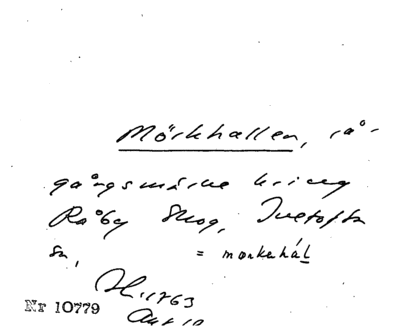 Mörkhallen, rå-
gångsmärke kring
Råby Skog, Tvetofta
sn, = morkahål
1763
Nr 10779